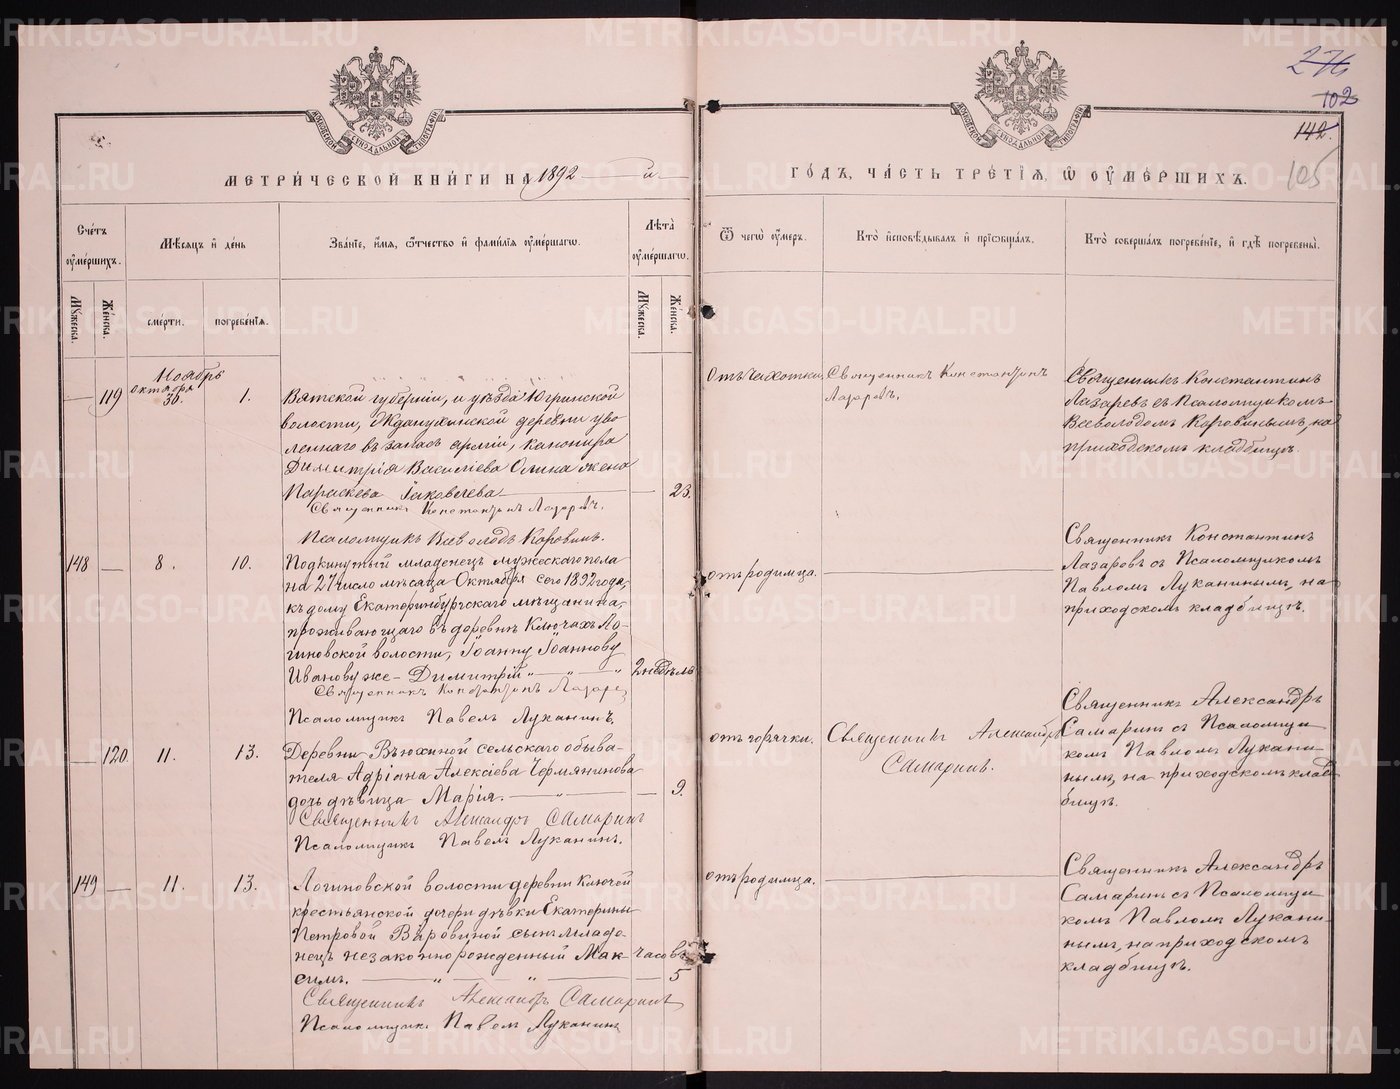 МЕТРИ́ЧЕСКОЙ КНИ́ГИ НА 1892 й
ГО́ДЪ, ЧА́СТЬ ТРЕ́ТІѦ, Ѡ ОУМЕ́РШИХЪ.
276
102
142.
105
Сче́тъ оуме́ршихъ.
Мѣ́сѧцъ и де́нь
Зва́нїе, и́мѧ, ѻ́тчество и фами́лїѧ оуме́ршагѡ.
Лѣ́та оуме́ршагѡ.
Ѿ чегѡ̀ оу́меръ.
Кто̀ и҆сповѣ́дывалъ и҆ прїѡбща́лъ.
Кто̀ соверша́лъ погребе́нїе, и҆ гдѣ̀ погребены̀.
Мꙋ́жеска.
Же́нска.
сме́рти.
погребе́нїѧ.
Мꙋ́жеска.
Же́нска.
Ноябрь
119
октября
30.
1.
Вятской губерніи, и уѣзда Югринской
волости, Жданухинской деревни уво
леннаго въ запасъ арміи, канонира
Димитрія Василіева Олина жена
Параскева Іаковлева
23.
Священникъ Константинъ Лазаревъ.
Псаломщикъ Всеволодъ Коровинъ.
Отъ чахотки.
Священникъ Константинъ
Лазаревъ.
Священникъ Константинъ
Лазаревъ съ Псаломщикомъ
Всеволодомъ Коровинымъ, на
приходскомъ кладбищѣ.
148
8.
10.
Подкинутый младенецъ мужескаго пола
на 27 число мѣсяца Октября сего 1892 года,
къ дому Екатеринбургскаго мѣщанина,
проживающаго въ деревнѣ Ключахъ Ло-
гиновской волости, Іоанну Іоаннову
Иванову же - Димитрій
2 недѣль
Священникъ Константинъ Лазаре
Псаломщикъ Павелъ Луканинъ.
отъ родимца.
Священникъ Константинъ
Лазаровъ съ Псаломщикомъ
Павломъ Луканинымъ, на
приходскомъ кладбищѣ.
120.
11.
13.
Деревни Вьюхиной сельскаго обыва-
теля Адріана Алексіева Чермянинова
дочь дѣвица Марія.
9.
Священникъ Александръ Самаринъ
Псаломщикъ Павелъ Луканинъ.
отъ горячки.
Священникъ Александръ
Самаринъ.
Священникъ Александръ
Самаринъ съ Псаломщи
комъ Павломъ Лукани-
нымъ, на приходскомъ клад
бищѣ.
149
11.
13.
Логиновской волости деревни Ключей
крестьянской дочери дѣвки Екатерины
Петровой Вѣровиной сынъ младе-
нецъ незаконнорожденный Мак-
симъ.
часовъ
5
Священникъ Александръ Самаринъ
Псаломщикъ Павелъ Луканинъ
отъ родимца.
Священникъ Александръ
Самаринъ съ Псаломщи
комъ Павломъ Лукани-
нымъ, на приходскомъ
кладбищѣ.
METRIKI.GASO-URAL.RU